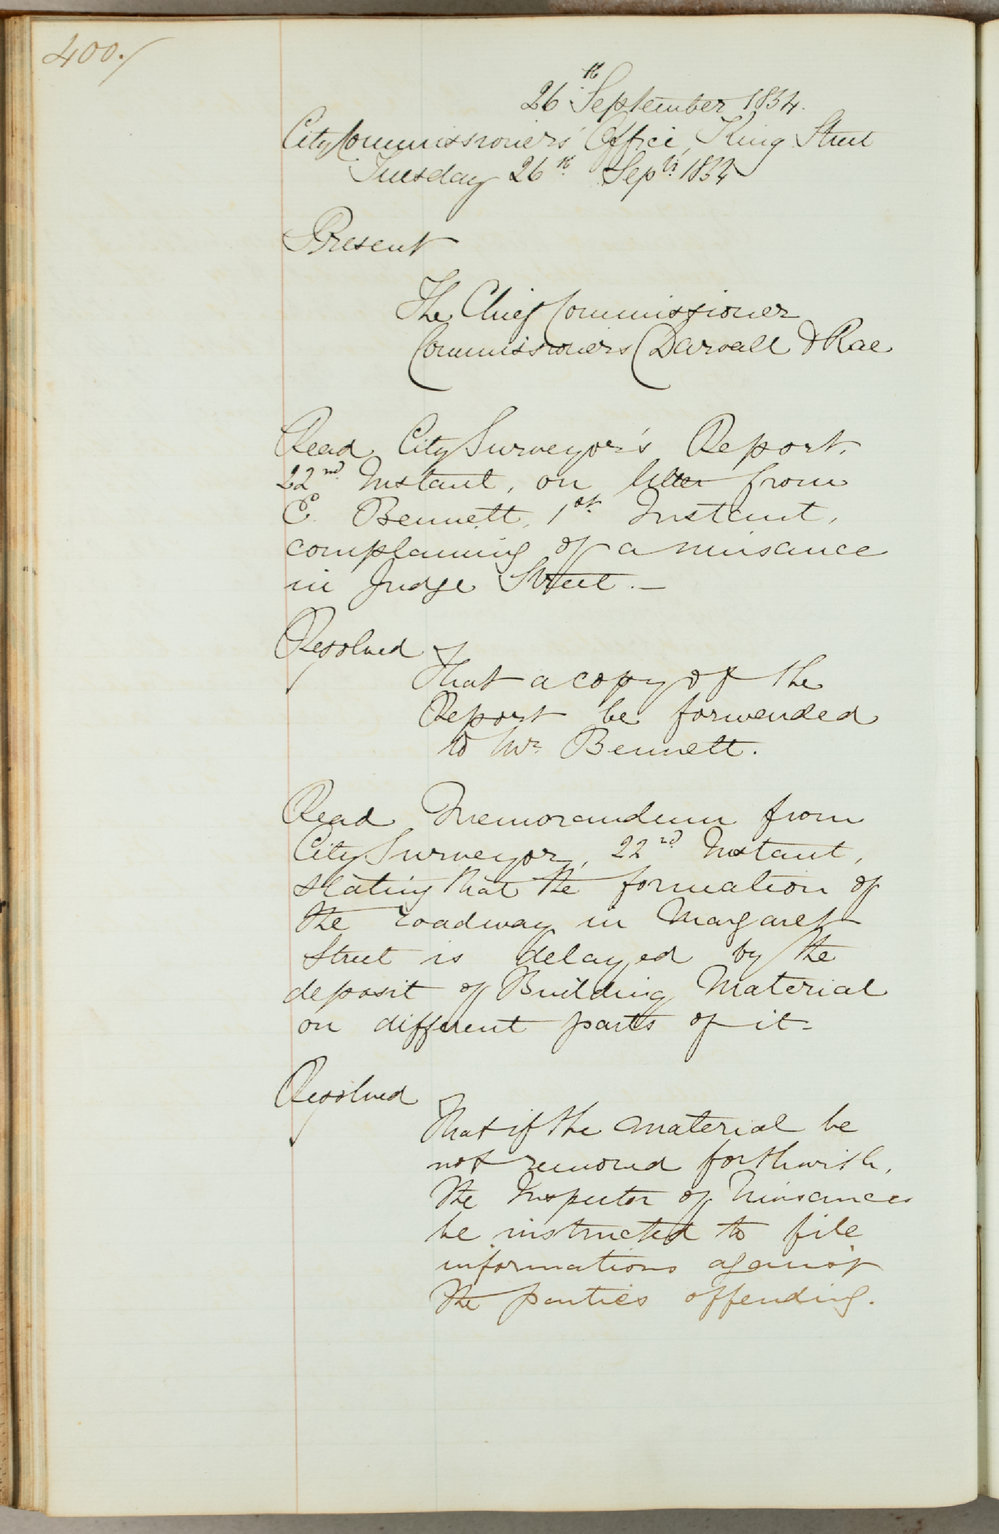 400./
26th September 1854.
City Commissioners' Office, King Street
Tuesday 26th. Sepr. 1854
Present
The Chief Commissioner
Commissioners Darvall & Rae
Read City Surveyor's Report,
22nd. Instant, on letter from
E Bennett, 1st. Instant,
complaining of a nuisance
in Judge Street. —
Resolved
That a copy of the
Report be forwarded
to Mr. Bennett.
Read Memorandum from
City Surveyor, 22nd. Instant,
stating that the formation of
the roadway in Margaret
Street is delayed by the
deposit of Building Material
on different parts of it-
Resolved
That if the material be
not removed forthwith,
the Inspector of Nuisances
be instructed to file
informations against
the parties offending.